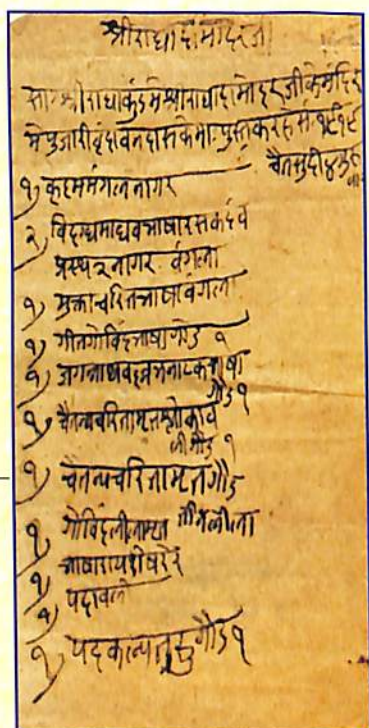 श्रीराधादामोदरजी
सा० श्रीराधाकुंडमे श्रीराधादामोदरजीके मंदिर
मे पुजारी वृंदावनदास के पुस्तक सं १९१९
चैतसुदी ४
१) कृष्णमंगल नागर
२) विदग्धमाधव भाषा रसकदंब
प्रस्थ २ नागर बंगला
१) मुक्ताचरित भाषा बंगला
१) गीतगोविंद भाषा गौड १
१) जगन्नाथवल्लभ नाटक भाषा
गौड १
१) चैतन्यचरितामृत श्लोकार्थ
गौड १
१) चैतन्यचरितामृत गौड
१) गोविंदलीलामृत
१) भाषा
१) पदावली
१) पदकल्पतरु गौड १